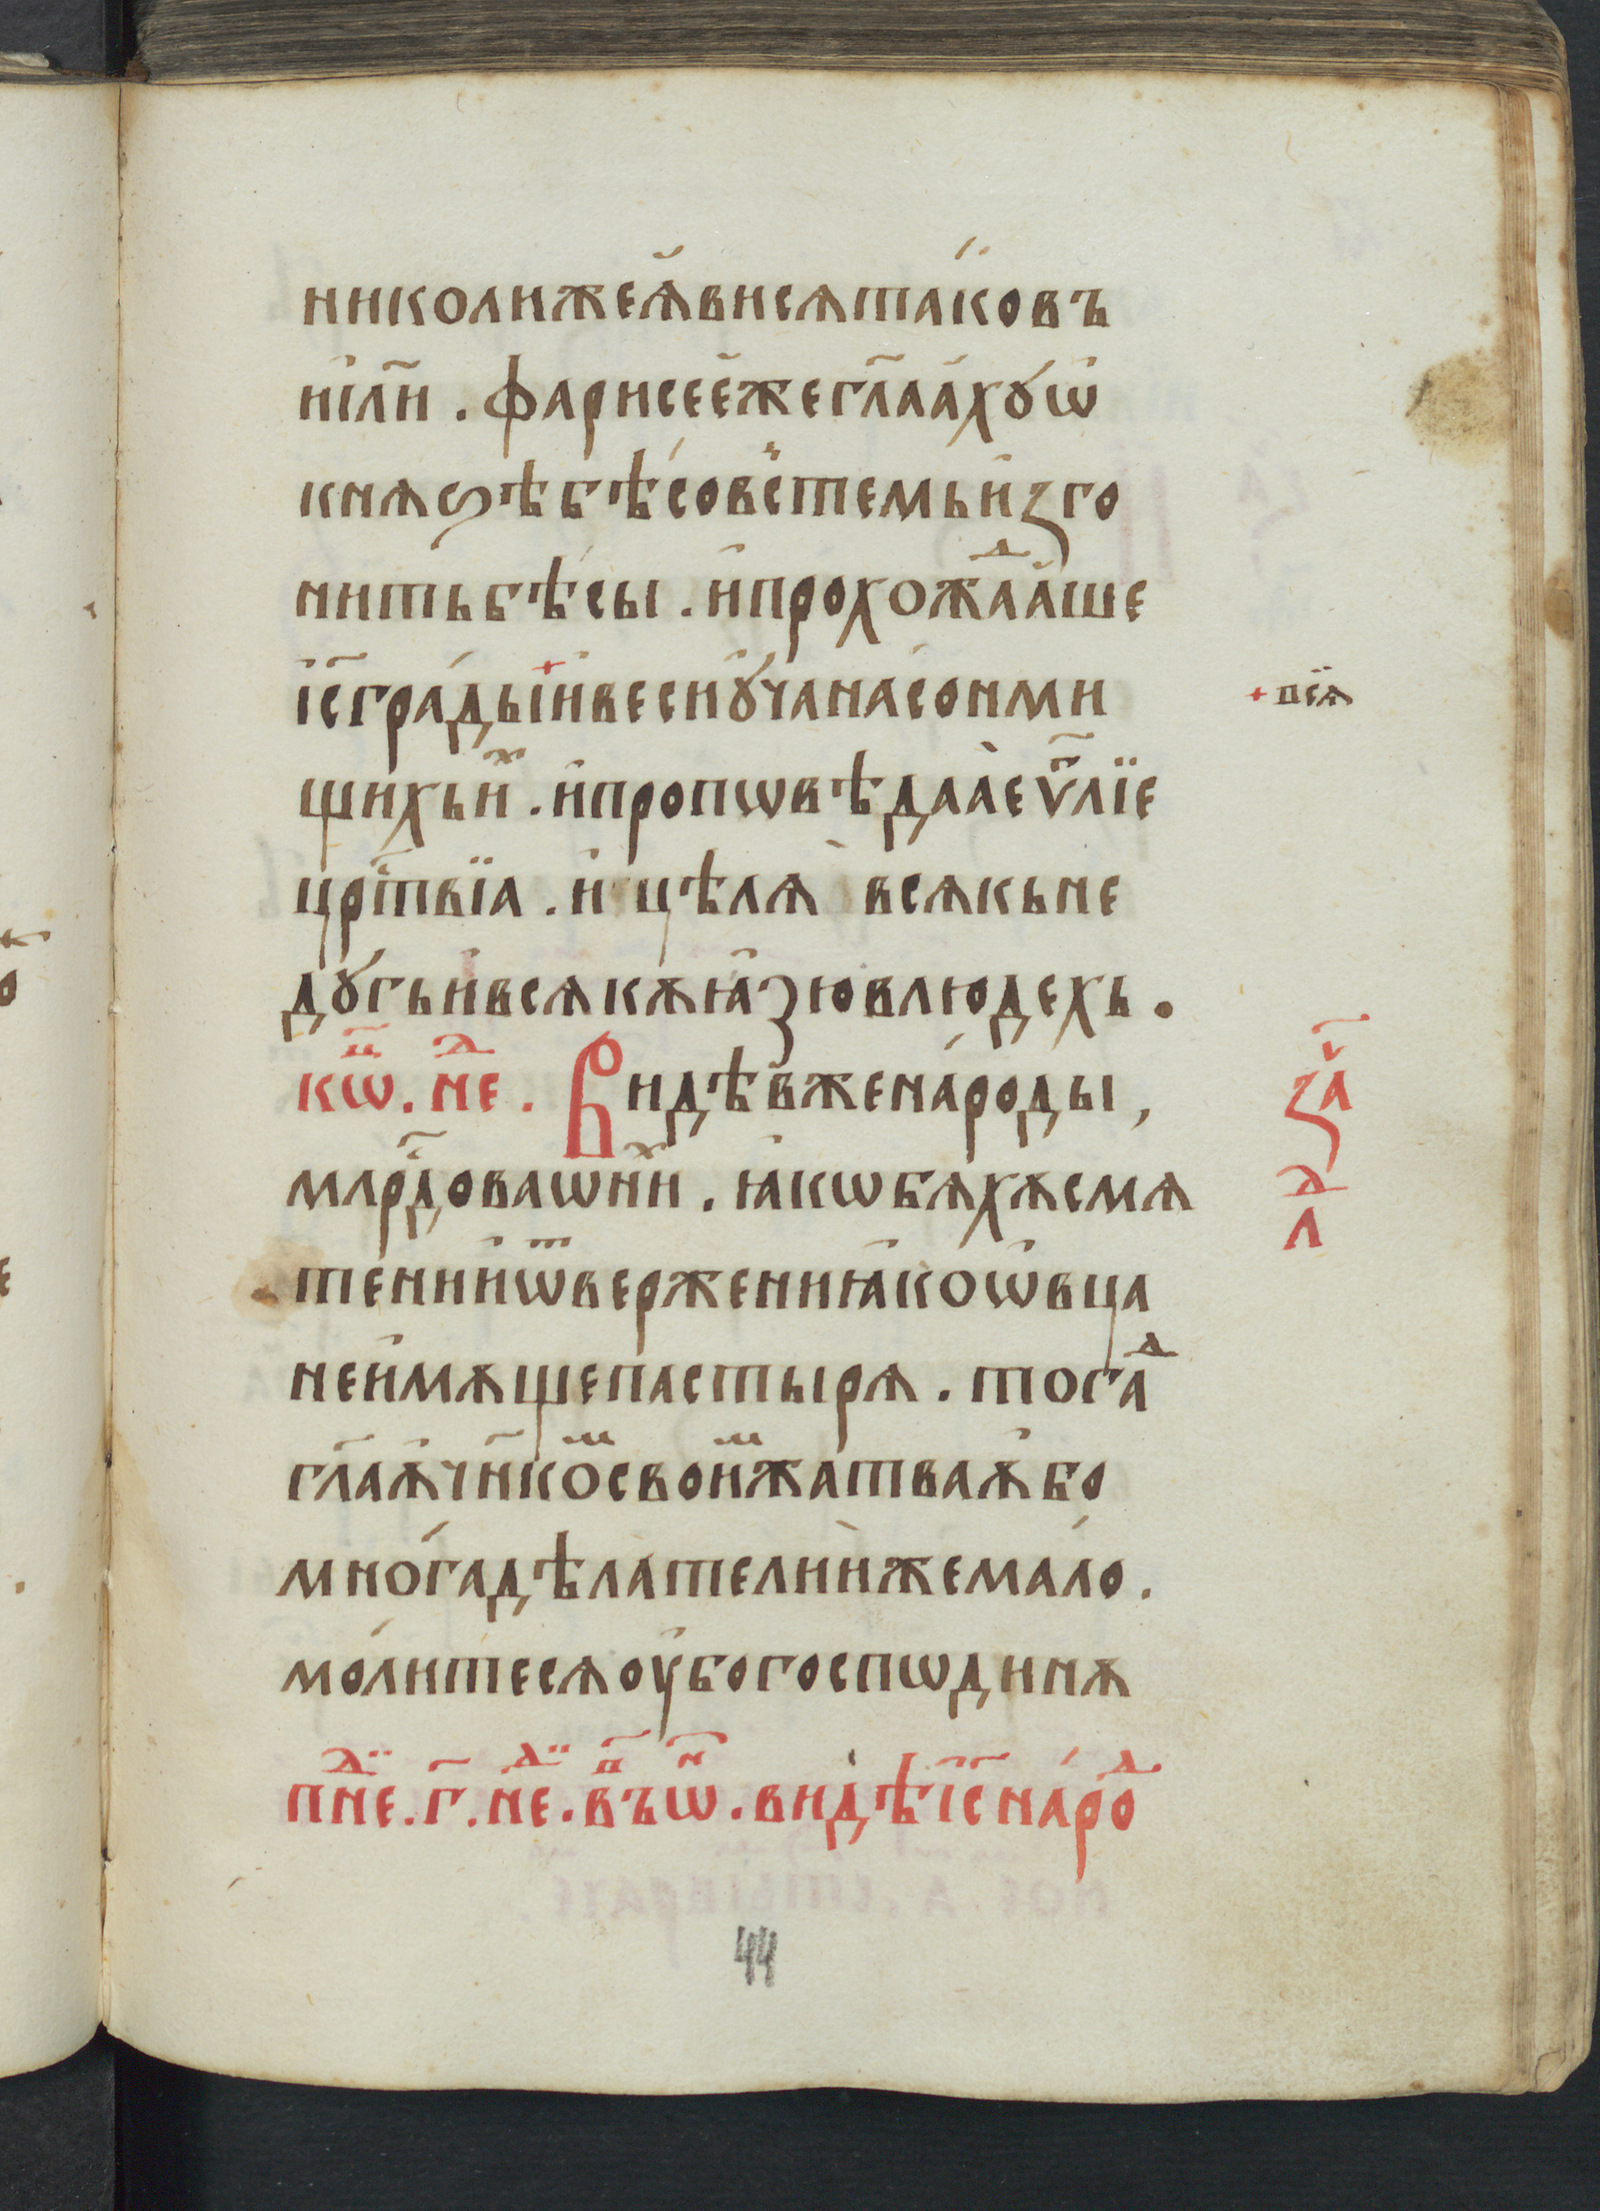 николижеѧ҆висѧтако́въ
ні҆лн҃и . фарисеѐжегл҃аа́хꙋѡ҆
кнѧѕѣбѣ́совⷭ҇темьи҆зго
нитьбѣ́сы . и҆прохожⷣа́аше
і҆с҃гра́ды+и҆весиꙋ҆чана́сонми
щихьиⷯ . и҆проповѣдаае҆ѵ҃лїе
црⷭ҇твїа . и҆ цѣлѧ̀ всѧкьне
дꙋгьи҆всѧкѫꙗ҆зювлюдехь .
+ псѧ̀
кѡⷩ҇ . неⷣ . Видѣвженаро́ды ,
за҃ч
млрⷭ҇доваѡниⷯ . ꙗ҆кѡбѧхѫсмѧ
лⷣ
тениѝѿверженниꙗ҆коѡ҆вца
неи҆мѫщепастырѧ . тогаⷣ
гл҃аѹ҆ч҃нкоⷨсвоиⷨжатваѹ҆бо
многадѣлателиѝжемало .
мо́литесѧоу҆богосподинѧ
пнеⷣ . г҃ . неⷣ . въⷫ҇ѡⷩ҇ . видѣі҆с҃на́роⷣ
44